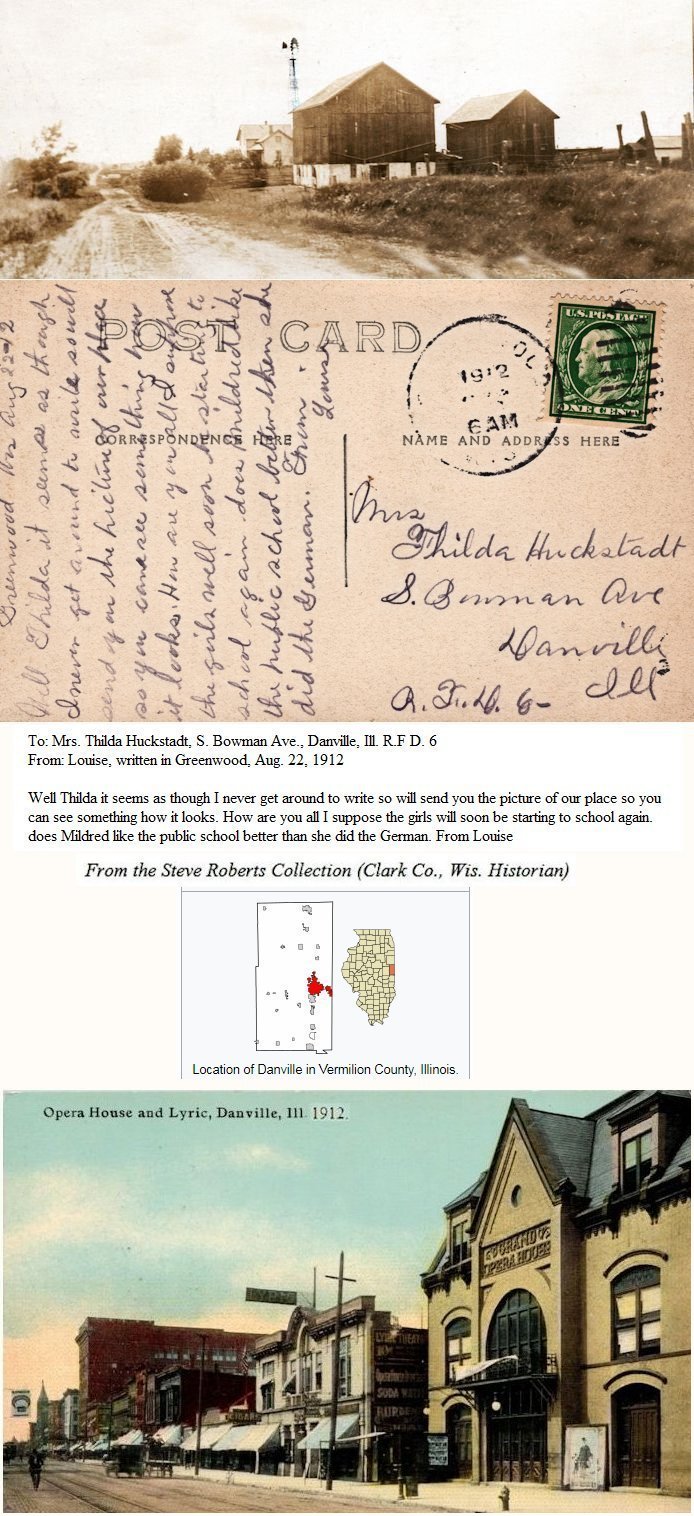 POST CARD
CORRESPONDENCE HERE
NAME AND ADDRESS HERE
U.S. POSTAGE
ONE CENT
1912
6 AM
Greenwood Wis Aug 22-12
Well Thilda it seems as though
I never get around to write so will
send you the picture of our place
so you can see something how
it looks. How are you all I suppose
the girls will soon be starting to
school again. does Mildred like
the public school better then she
did the German. From
Louise
Mrs
Thilda Huckstadt
S. Bowman Ave
Danville
Ill
R.F.D. 6-
To: Mrs. Thilda Huckstadt, S. Bowman Ave., Danville, Ill. R.F D. 6
From: Louise, written in Greenwood, Aug. 22, 1912
Well Thilda it seems as though I never get around to write so will send you the picture of our place so you
can see something how it looks. How are you all I suppose the girls will soon be starting to school again.
does Mildred like the public school better than she did the German. From Louise
From the Steve Roberts Collection (Clark Co., Wis. Historian)
Location of Danville in Vermilion County, Illinois.
Opera House and Lyric, Danville, Ill 1912.
GRAND
OPERA HOUSE
LYRIC
CIGARS
SODA